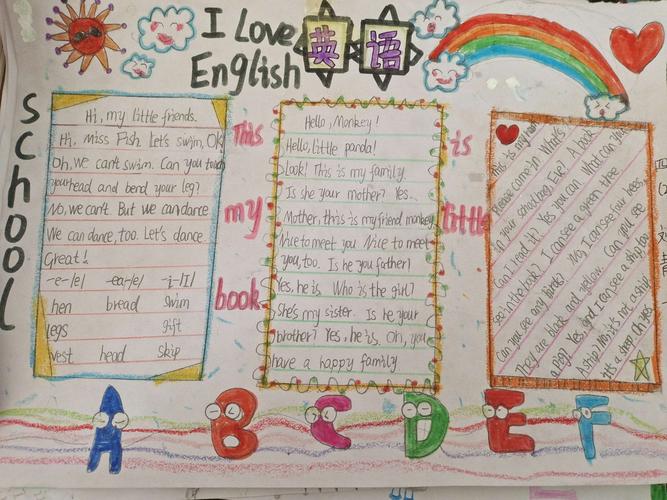 I Love
English 英语
School
Hi, my little friends.
Hi, miss Fish. Let's swim, OK
Oh, we can't swim. Can you touch
your head and bend your leg?
No, we can't. But we can dance
We can dance, too. Let's dance.
Great!
-e-/e/ -ea-/e/ -i-/I/
hen bread swim
legs gift
vest head skip
This
my
book
Hello, Monkey!
Hello, little panda!
Look! This is my family.
Is she your mother? Yes.
Mother, this is my friend monkey
Nice to meet you. Nice to meet
you, too. Is he you father?
Yes, he is. Who is the girl?
She's my sister. Is he your
brother? Yes, he is. Oh, you
have a happy family
is
little
This is my
Please come in. What's
in your schoolbag, Eve? A book
Can I read it? Yes you can. What can you
see in the book? I can see a green tree
Can you see any birds? Yes, I can see four bees,
They are black and yellow. Can you see
a pig? Yes, and I can see a ship, too
A ship? No, it's not a ship
It's a sheep. Oh, yes
A B C D E F